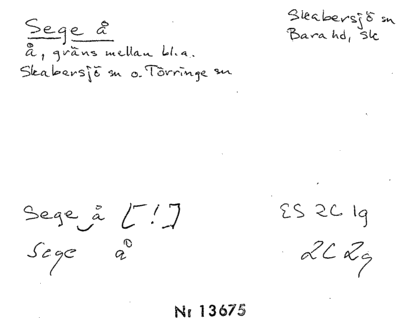 Sege å
Skabersjö sn
Bara hd, Sk
å, gräns mellan bl.a.
Skabersjö sn o. Törringe sn
Sege å [!]
ES 2C 1g
Sege å
2C 2g
Nr 13675